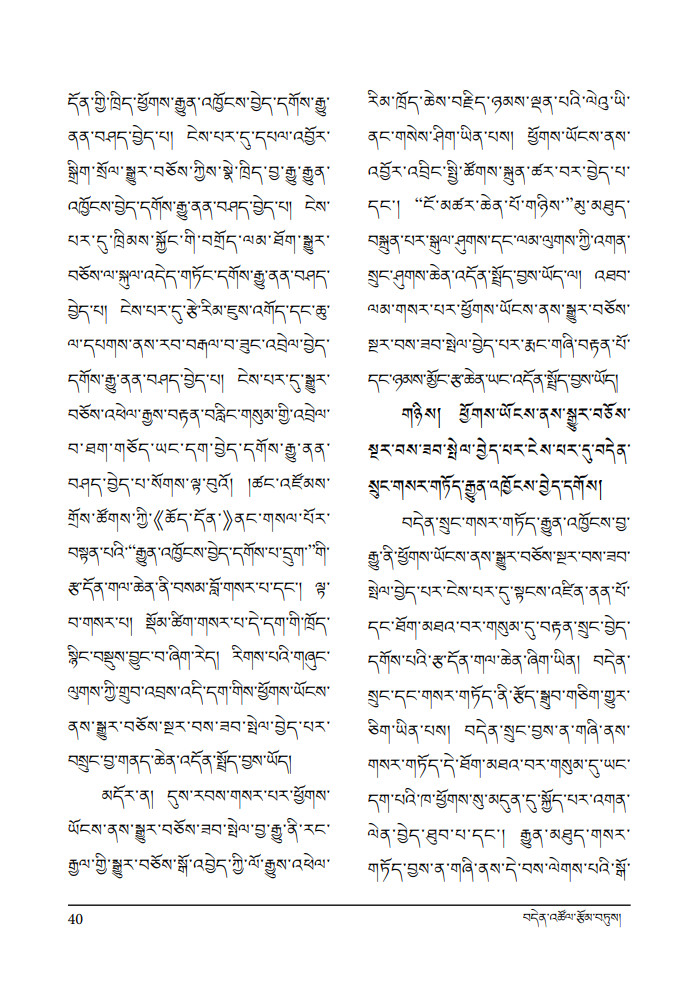 དོན་གྱི་ཁྲིད་ཕྱོགས་རྒྱུན་འཁྱོངས་བྱེད་དགོས་རྒྱུ་
ནན་བཤད་བྱེད་པ། ངེས་པར་དུ་དཔལ་འབྱོར་
སྒྲིག་སྲོལ་སྒྱུར་བཅོས་ཀྱིས་སྣེ་ཁྲིད་བྱ་རྒྱུ་རྒྱུན་
འཁྱོངས་བྱེད་དགོས་རྒྱུ་ནན་བཤད་བྱེད་པ། ངེས་
པར་དུ་ཁྲིམས་སྐྱོང་གི་བགྲོད་ལམ་ཐོག་སྒྱུར་
བཅོས་ལ་སྐུལ་འདེད་གཏོང་དགོས་རྒྱུ་ནན་བཤད་
བྱེད་པ། ངེས་པར་དུ་རྩེ་རིམ་ཇུས་འགོད་དང་ཆུ་
ལ་དཔགས་ནས་རབ་བརྒལ་བ་ཟུང་འབྲེལ་བྱེད་
དགོས་རྒྱུ་ནན་བཤད་བྱེད་པ། ངེས་པར་དུ་སྒྱུར་
བཅོས་འཕེལ་རྒྱས་བརྟན་བརླིང་གསུམ་གྱི་འབྲེལ་
བ་ཐག་གཅོད་ཡང་དག་བྱེད་དགོས་རྒྱུ་ནན་
བཤད་བྱེད་པ་སོགས་ལྟ་བུའོ། །ཚང་འཛོམས་
གྲོས་ཚོགས་ཀྱི་《ཆོད་དོན་》ནང་གསལ་པོར་
བསྟན་པའི་“རྒྱུན་འཁྱོངས་བྱེད་དགོས་པ་དྲུག་”གི་
རྩ་དོན་གལ་ཆེན་ནི་བསམ་བློ་གསར་པ་དང་། ལྟ་
བ་གསར་པ། སྡོམ་ཚིག་གསར་པ་དེ་དག་གི་ཁྲོད་
སྙིང་བསྡུས་བྱུང་བ་ཞིག་རེད། རིགས་པའི་གཞུང་
ལུགས་ཀྱི་གྲུབ་འབྲས་འདི་དག་གིས་ཕྱོགས་ཡོངས་
ནས་སྒྱུར་བཅོས་སྔར་བས་ཟབ་སྤེལ་བྱེད་པར་
བསྲུང་བྱ་གནད་ཆེན་འདོན་སྤྲོད་བྱས་ཡོད།
མདོར་ན། དུས་རབས་གསར་པར་ཕྱོགས་
ཡོངས་ནས་སྒྱུར་བཅོས་ཟབ་སྤེལ་བྱ་རྒྱུ་ནི་རང་
རྒྱལ་གྱི་སྒྱུར་བཅོས་སྒོ་འབྱེད་ཀྱི་ལོ་རྒྱུས་འཕེལ་
རིམ་ཁྲོད་ཆེས་བརྗིད་ཉམས་ལྡན་པའི་ལེའུ་ཡི་
ནང་གསེས་ཤིག་ཡིན་པས། ཕྱོགས་ཡོངས་ནས་
འབྱོར་འབྲིང་སྤྱི་ཚོགས་སྐྲུན་ཚར་བར་བྱེད་པ་
དང་། “ངོ་མཚར་ཆེན་པོ་གཉིས་”མུ་མཐུད་
བསྐྲུན་པར་སྐུལ་ཤུགས་དང་ལམ་ལུགས་ཀྱི་འགན་
སྲུང་ཤུགས་ཆེན་འདོན་སྤྲོད་བྱས་ཡོད་ལ། འཐབ་
ལམ་གསར་པར་ཕྱོགས་ཡོངས་ནས་སྒྱུར་བཅོས་
སྔར་བས་ཟབ་སྤེལ་བྱེད་པར་རྨང་གཞི་བརྟན་པོ་
དང་ཉམས་མྱོང་རྩ་ཆེན་ཡང་འདོན་སྤྲོད་བྱས་ཡོད།
གཉིས། ཕྱོགས་ཡོངས་ནས་སྒྱུར་བཅོས་
སྔར་བས་ཟབ་སྤེལ་བྱེད་པར་ངེས་པར་དུ་བདེན་
སྲུང་གསར་གཏོད་རྒྱུན་འཁྱོངས་བྱེད་དགོས།
བདེན་སྲུང་གསར་གཏོད་རྒྱུན་འཁྱོངས་བྱ་
རྒྱུ་ནི་ཕྱོགས་ཡོངས་ནས་སྒྱུར་བཅོས་སྔར་བས་ཟབ་
སྤེལ་བྱེད་པར་ངེས་པར་དུ་སྟངས་འཛིན་ནན་པོ་
དང་ཐོག་མཐའ་བར་གསུམ་དུ་བརྟན་སྲུང་བྱེད་
དགོས་པའི་རྩ་དོན་གལ་ཆེན་ཞིག་ཡིན། བདེན་
སྲུང་དང་གསར་གཏོད་ནི་རྩོད་སྒྲུབ་གཅིག་གྱུར་
ཅིག་ཡིན་པས། བདེན་སྲུང་བྱས་ན་གཞི་ནས་
གསར་གཏོད་དེ་ཐོག་མཐའ་བར་གསུམ་དུ་ཡང་
དག་པའི་ཁ་ཕྱོགས་སུ་མདུན་དུ་སྐྱོད་པར་འགན་
ལེན་བྱེད་ཐུབ་པ་དང་། རྒྱུན་མཐུད་གསར་
གཏོད་བྱས་ན་གཞི་ནས་དེ་བས་ལེགས་པའི་སྒོ་
40
བདེན་འཚོལ་རྩོམ་བཏུས།